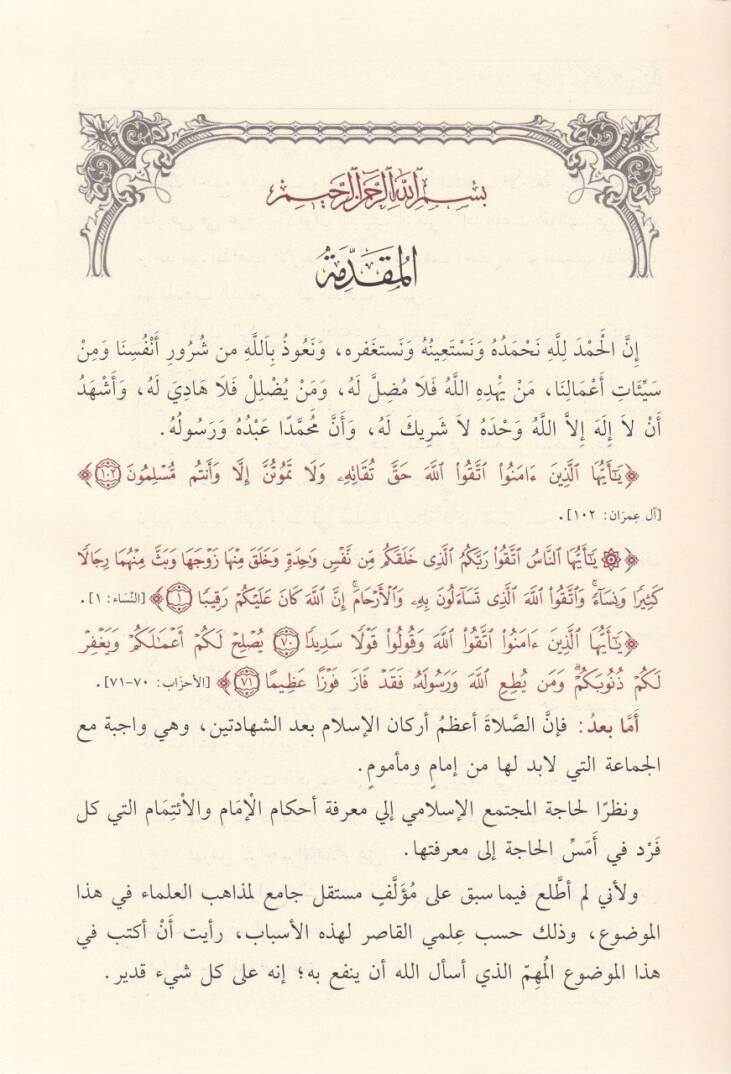 بِسْمِ اللَّهِ الرَّحْمَنِ الرَّحِيمِ
المُقَدِّمَةُ
إِنَّ الْحَمْدَ لِلَّهِ نَحْمَدُهُ وَنَسْتَعِينُهُ وَنَستغَفره، وَنَعُوذُ بِاَللَّهِ من شُرُورِ أَنْفُسِنَا وَمِنْ
سَيِّئَاتِ أَعْمَالِنَا، مَنْ يَهْدِهِ اللَّهُ فَلَا مُضِلَّ لَهُ، وَمَنْ يُضْلِلْ فَلَا هَادِيَ لَهُ، وَأَشْهَدُ
أَنْ لاَ إِلَهَ إِلاَّ اللَّهُ وَحْدَهُ لاَ شَرِيكَ لَهُ، وَأَنَّ مُحَمَّدًا عَبْدُهُ وَرَسُولُهُ.
﴿يَٰٓأَيُّهَا ٱلَّذِينَ ءَامَنُوا۟ ٱتَّقُوا۟ ٱللَّهَ حَقَّ تُقَاتِهِۦ وَلَا تَمُوتُنَّ إِلَّا وَأَنتُم مُّسْلِمُونَ ١٠٢﴾
[آل عِمرَان: ١٠٢].
﴿۞ يَٰٓأَيُّهَا ٱلنَّاسُ ٱتَّقُوا۟ رَبَّكُمُ ٱلَّذِى خَلَقَكُم مِّن نَّفْسٍ وَٰحِدَةٍ وَخَلَقَ مِنْهَا زَوْجَهَا وَبَثَّ مِنْهُمَا رِجَالًا
كَثِيرًا وَنِسَآءً ۚ وَٱتَّقُوا۟ ٱللَّهَ ٱلَّذِى تَسَآءَلُونَ بِهِۦ وَٱلْأَرْحَامَ ۚ إِنَّ ٱللَّهَ كَانَ عَلَيْكُمْ رَقِيبًا ١﴾ [النِّسَاء: ١].
﴿يَٰٓأَيُّهَا ٱلَّذِينَ ءَامَنُوا۟ ٱتَّقُوا۟ ٱللَّهَ وَقُولُوا۟ قَوْلًا سَدِيدًا ٧٠ يُصْلِحْ لَكُمْ أَعْمَٰلَكُمْ وَيَغْفِرْ
لَكُمْ ذُنُوبَكُمْ ۗ وَمَن يُطِعِ ٱللَّهَ وَرَسُولَهُۥ فَقَدْ فَازَ فَوْزًا عَظِيمًا ٧١﴾ [الأحزَاب: ٧٠-٧١].
أَمَّا بعدُ: فإنَّ الصَّلاةَ أعظمُ أركان الإسلام بعد الشهادتين، وهي واجبة مع
الجماعة التي لابد لها من إمامٍ ومأمومٍ.
ونظرًا لحاجة المجتمع الإسلامي إلي معرفة أحكام الْإمَام والاْئتِمَام التي كل
فَرْد في أَمَسِّ الحاجة إلى معرفتها.
ولأني لم أطَّلع فيما سبق على مُؤَلَّفٍ مستقل جامع لمذاهب العلماء في هذا
الموضوع، وذلك حسب عِلمي القاصر لهذه الأسباب، رأيت أَنْ أكتب في
هذا الموضوع المُهِمّ الذي أسأل الله أن ينفع به؛ إنه على كل شيء قدير.